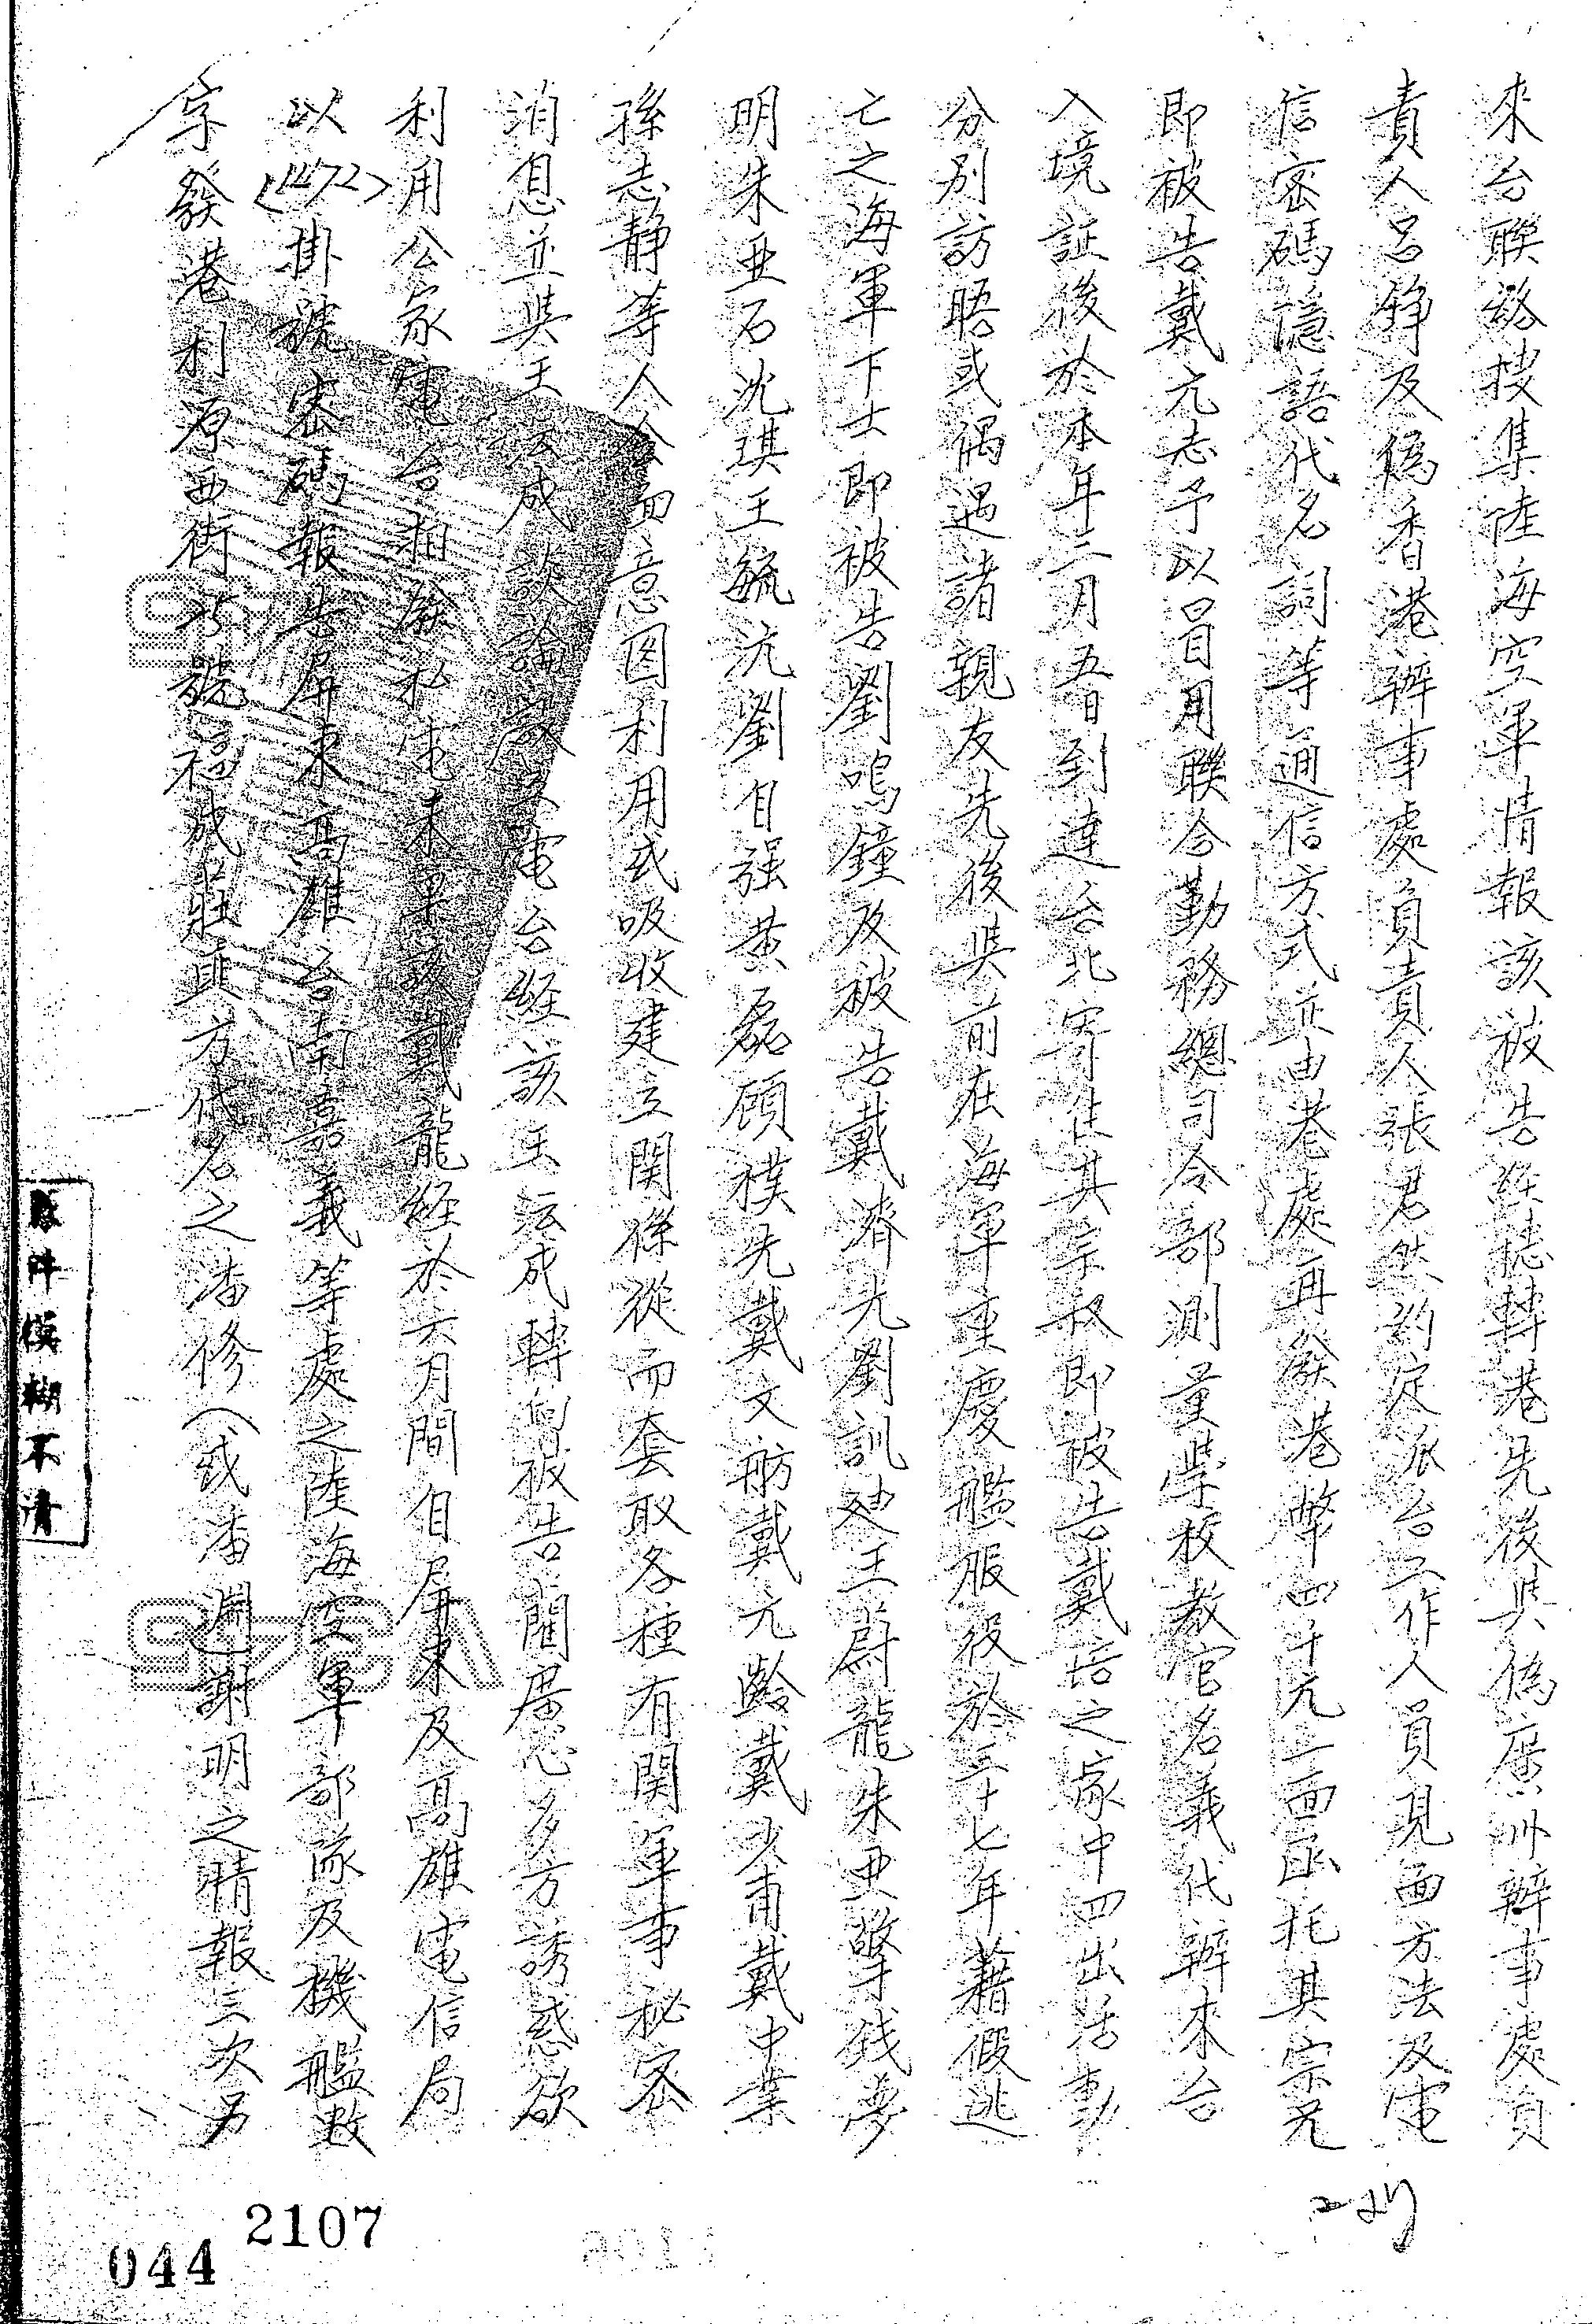 來台聯絡搜集陸海空軍情報該被告經聽轉港先後與偽廣州辦事處負
責人呂錚及偽香港辦事處負責人張君然約定派台工作人員見面方法及電
信密碼隱語代名詞等通信方式並由港處再發港幣四十元一面函托其宗兄
即被告戴元志予以冒用聯合勤務總司令部測量學校教官名義代辦來台
入境証後於本年二月五日到達台北寄住其宗叔即被告戴培之家中四出活動
分別訪晤或偶遇諸親友先後與前在海軍重慶艦服役於三十七年藉假逃
亡之海軍下士即被告劉鳴鐘及被告戴濟先劉訓建王蔚龍朱亞擎錢夢
明朱亞石沈琪王毓沅劉自强黃磊顧樸先戴文舫戴九齡戴少甫戴中業
孫志靜等人會面意圖利用或吸收建立関係從而套取各種有関軍事秘密
消息並與王云成談論設立電台經該王云成轉向被告閻廣心多方誘惑欲
利用公家電台相發私電未果該戴龍經於六月間自屏東及高雄電信局
以掛號密碼報告屏東高雄台南嘉義等處之陸海空軍部隊及機艦數
字發港利源西街號福成莊直方代名之潘修(或潘淵)謝明之情報三次另
原件模糊不清
2107
044